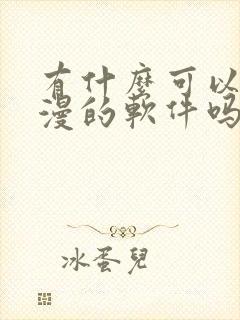 有什麼可以
漫的軟件吗
冰蛋兒